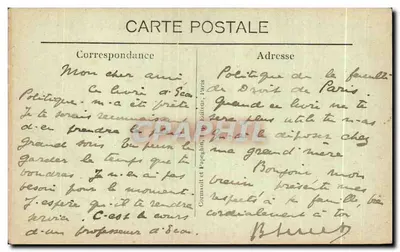 CARTE POSTALE
Correspondance
Adresse
Mon cher ami
Ce livre d'Eco
Politique m'a été prêté
Je te serais reconnaissant
d'en prendre
grand soin Tu peux le
garder le temps que tu
voudras. Je n'en ai pas
besoin pour le moment.
J'espère qu'il te rendra
service. C'est le cours
d'un professeur d'Eco.
Politique de la faculté
de Droit de Paris.
Quand ce livre ne te
sera plus utile tu n'as
qu'à le déposer chez
ma grand'mère
Bonjour mon
vieux présente mes
respects à ta famille, bien
cordialement à toi